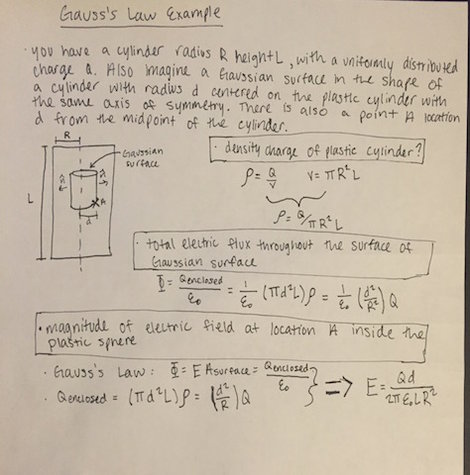 Gauss's Law Example
• you have a cylinder radius R height L, with a uniformly distributed
charge Q. Also imagine a Gaussian surface in the shape of
a cylinder with radius d centered on the plastic cylinder with
the same axis of symmetry. There is also a point A location
d from the midpoint of the cylinder.
R
Gaussian
surface
L
n̂ n̂
A
d
• density charge of plastic cylinder?
ρ = Q/V V = πR²L
ρ = Q/πR²L
• total electric flux throughout the surface of
Gaussian surface
Φ = Qenclosed/ε₀ = 1/ε₀ (πd²L)ρ = 1/ε₀ (d²/R²) Q
• magnitude of electric field at location A inside the
plastic sphere
• Gauss's Law: Φ = E Asurface = Qenclosed/ε₀
• Qenclosed = (πd²L)ρ = (d²/R) Q
⇒ E = Qd/2πε₀LR²